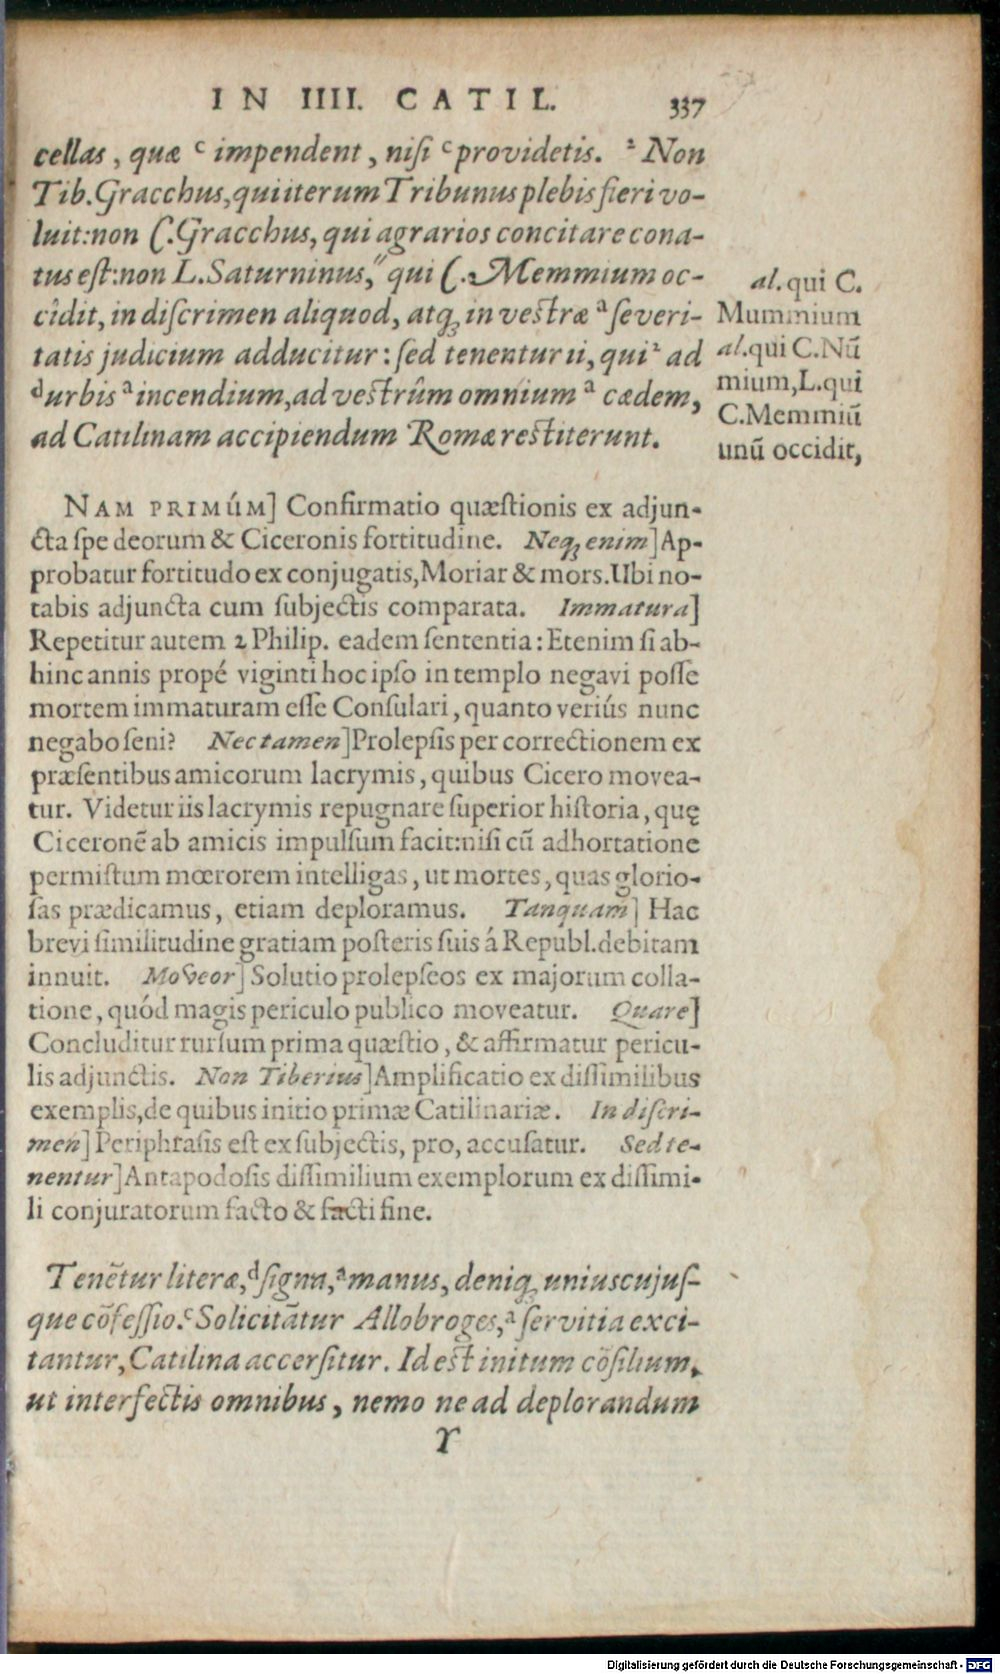 IN IIII. CATIL. 337
cellas, quæ ᶜ impendent, niſi ᶜ providetis. ² Non
Tib. Gracchus, qui iterum Tribunus plebis fieri vo-
luit: non C. Gracchus, qui agrarios concitare cona-
tus eſt: non L. Saturninus," qui C. Memmium oc-
cîdit, in diſcrimen aliquod, atq; in veſtræ ᵃ ſeveri-
tatis judicium adducitur: ſed tenentur ii, qui ² ad
ᵈ urbis ᵃ incendium, ad veſtrûm omnium ᵃ cædem,
ad Catilinam accipiendum Romæ reſtiterunt.
al. qui C.
Mummium
al. qui C. Nū
mium, L. qui
C. Memmiū
unū occidit,
NAM PRIMÚM] Confirmatio quæſtionis ex adjun-
cta ſpe deorum & Ciceronis fortitudine. Neq; enim] Ap-
probatur fortitudo ex conjugatis, Moriar & mors. Ubi no-
tabis adjuncta cum ſubjectis comparata. Immatura]
Repetitur autem 2 Philip. eadem ſententia: Etenim ſi ab-
hinc annis propé viginti hoc ipſo in templo negavi poſſe
mortem immaturam eſſe Conſulari, quanto veriús nunc
negabo ſeni? Nec tamen] Prolepſis per correctionem ex
præſentibus amicorum lacrymis, quibus Cicero movea-
tur. Videtur iis lacrymis repugnare ſuperior hiſtoria, quę
Ciceronē ab amicis impulſum facit: niſi cū adhortatione
permiſtum mœrorem intelligas, ut mortes, quas glorio-
ſas prædicamus, etiam deploramus. Tanquam] Hac
brevi ſimilitudine gratiam poſteris ſuis á Republ. debitam
innuit. Moveor] Solutio prolepſeos ex majorum colla-
tione, quód magis periculo publico moveatur. Quare]
Concluditur rurſum prima quæſtio, & affirmatur pericu-
lis adjunctis. Non Tiberius] Amplificatio ex diſſimilibus
exemplis, de quibus initio primæ Catilinariæ. In diſcri-
men] Periphraſis eſt ex ſubjectis, pro, accuſatur. Sed te-
nentur] Antapodoſis diſſimilium exemplorum ex diſſimi-
li conjuratorum facto & facti fine.
Tenētur literæ, ᵈ ſigna, ᵃ manus, deniq; uniuscujuſ-
que cōfeſſio. ᶜ Solicitātur Allobroges, ᵃ ſervitia exci-
tantur, Catilina accerſitur. Id eſt initum cōſilium,
ut interfectis omnibus, nemo ne ad deplorandum
Y
Digitalisierung gefördert durch die Deutsche Forschungsgemeinschaft - DFG